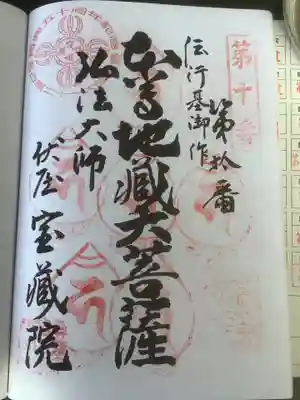 第十番
第拾番
伝行基御作
本尊地蔵大菩薩
弘法大師
伏屋 宝蔵院